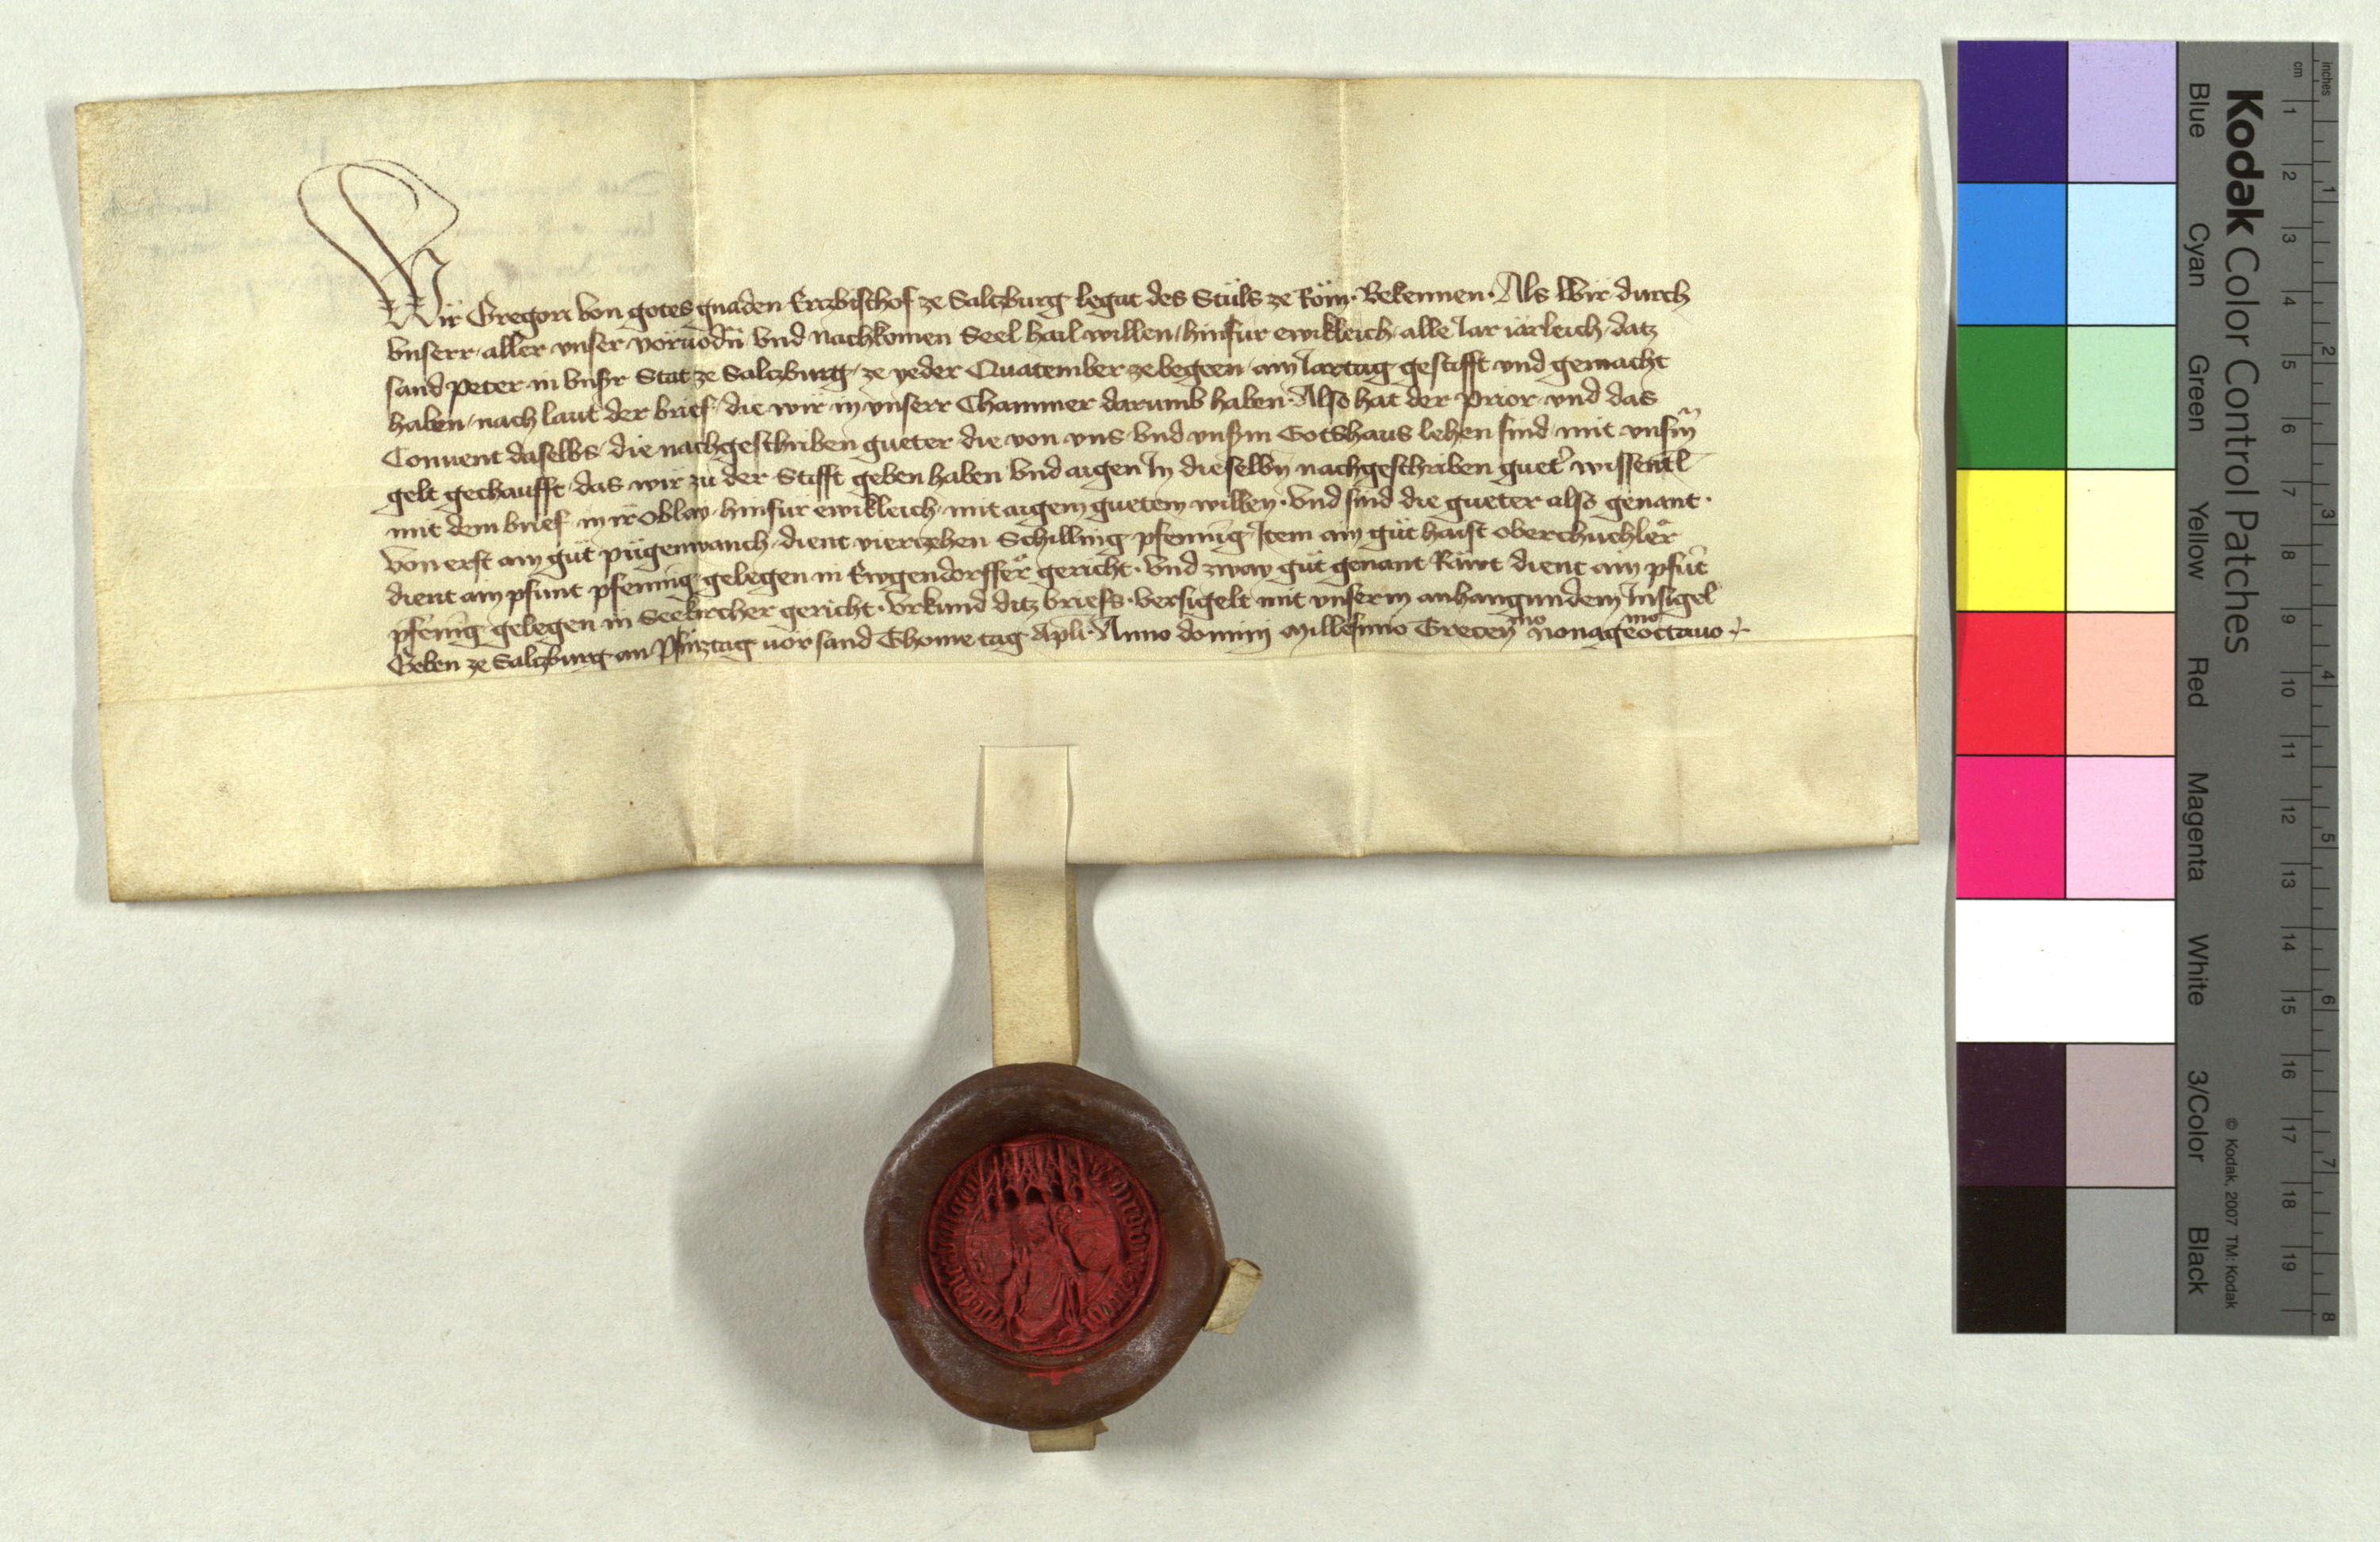 Wir Gregori von gotes gnaden Erczbischof ze Salczburg legat des Stuls ze Röm. Bekennen. Als Wir durch
vnserr aller vnser voruodn̄ vnd nachkomen Seel hail willen hinfur ewikleich alle Jar iärleich datz
sand Peter in vnßr Stat ze Salczburg ze yeder Quatember ze begeen ain Jartag gestifft vnd gemacht
haben nach laut der brief die wir in vnserr Chammer darumb haben. Also hat der Prior vnd das
Conuent daselbs die nachgeschriben gueter die von vns vnd vnßm Gotshaus lehen sind mit vnsm̄
gelt gechaufft das wir zu der Stifft geben haben vnd aigen In dieselbn̄ nachgeschriben guet' wissentl
mit dem brief in ir Oblay hinfur ewikleich mit aigem guetem willen. Vnd sind die gueter also genant.
Von erst ain gut pügenwanch dient vierczehen Schilling pfennīg Item ain gut haist oberchuchler
dient ain pfunt pfennīg gelegen in Eugendorffer gericht. Vnd zway gut genant Raint dient ain pfūt
pfenīg gelegen in Seekircher gericht. Vrkund ditz briefs. Versigelt mit vnserm anhangundem Insigel
Geben ze Salczburg an Pfinztag vor sand Thome tag Apli. Anno domini Millesimo Trecen̄mo nonageͫoottauo.
Kodak Color Control Patches
Blue Cyan Green Yellow Red Magenta White 3/Color Black
© Kodak, 2007 TM: Kodak
inches 1 2 3 4 5 6 7 8
cm 1 2 3 4 5 6 7 8 9 10 11 12 13 14 15 16 17 18 19